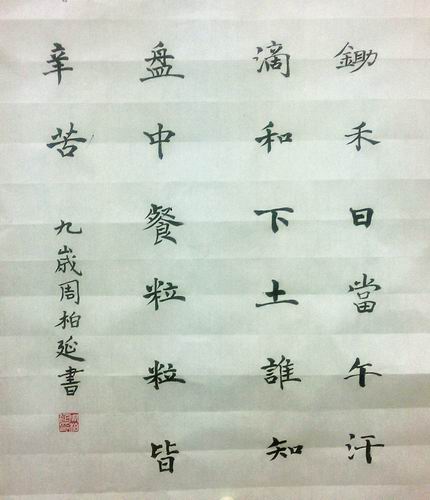 鋤禾日當午汗
滴和下土誰知
盤中餐粒粒皆
辛苦
九歲周柏延書